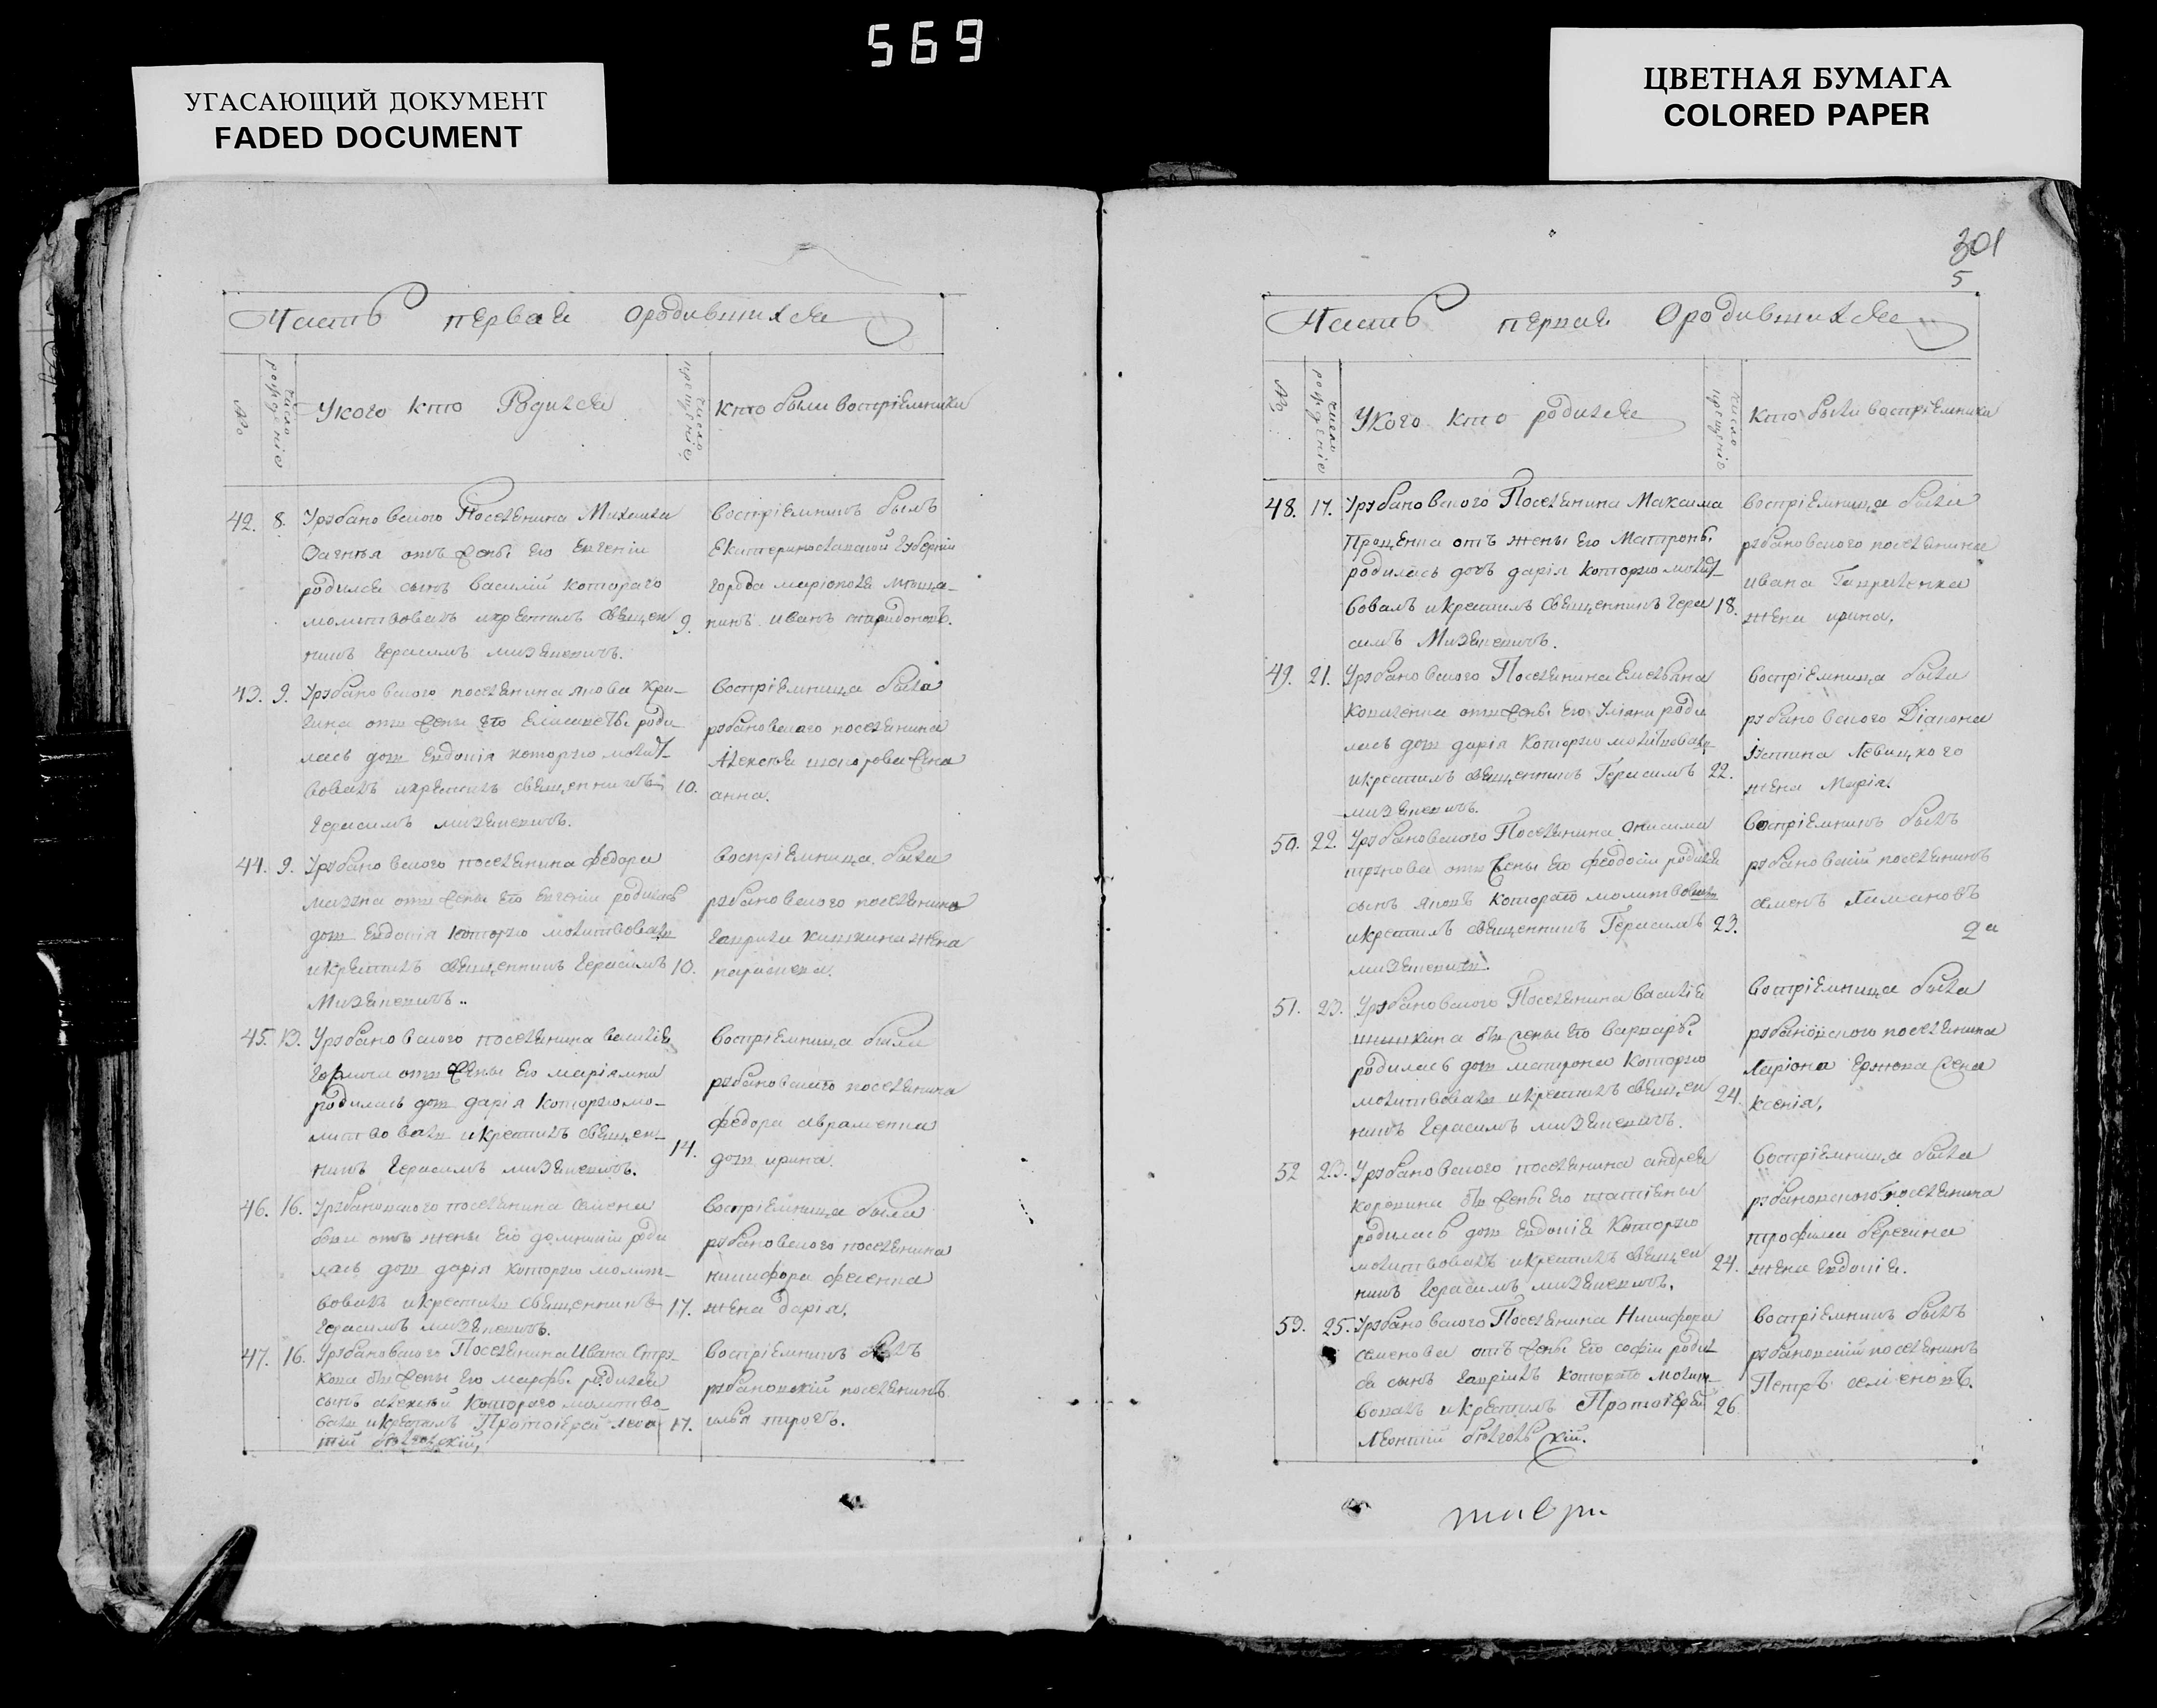 569
УГАСАЮЩИЙ ДОКУМЕНТ
FADED DOCUMENT
ЦВЕТНАЯ БУМАГА
COLORED PAPER
Часть первая ородившихся
№
число рожденіе
Укого кто Родился
число крещеніе
кто были воспріемники
42. 8. Урубановского Поселенина Михаила
отъ жены его Евгеніи
родился сынъ Василий которого
молитвовалъ икрестилъ священ 9.
никъ Герасимъ мизеневичъ.
воспріемникъ былъ
Екатеринославской губерніи
города маріополя меща-
нинъ иванъ спиридоновъ.
43. 9. Урубановского поселенина якова
отъ жены его Елисаветы роди
лась дочь Евдокія которую молит
вовалъ икрестилъ священникъ 10.
Герасимъ мизеневичъ.
воспріемница была
рубановского поселенина
Алексея жена
анна.
44. 9. Урубановского поселенина федора
отъ жены его Евгеніи родилась
дочь Евдокія которую молитвовалъ
икрестилъ священникъ Герасимъ 10.
Мизеневичъ..
воспріемница была
рубановского поселенина
гаврила жена
параскева.
45. 13. Урубановского поселенина василія
отъ жены его маріямны
родилась дочь дарія которую мо-
литвовалъ икрестилъ священ-
никъ Герасимъ мизеневичъ. 14.
воспріемница была
рубановского поселенина
федора авраменка
дочь ирина.
46. 16. Урубановского поселенина семена
отъ жены его домникіи роди
лась дочь дарія которую молит-
вовалъ икрестилъ священникъ 17.
Герасимъ мизеневичъ.
воспріемница была
рубановского поселенина
никифора
жена дарія.
47. 16. Урубановского Поселенина Ивана Стру-
кова отъ жены его марфы родился
сынъ алексей которого молитво-
валъ икрестилъ Протоіерей леон 17.
тий
воспріемникъ былъ
рубановскій поселенинъ
илья пирогъ.
301
5
Часть первая Ородившихся
№
число рожденіе
Укого кто родился
число крещеніе
кто были воспріемники
48. 17. Урубановского Поселенина Максима
Проценка отъ жены его Матроны
родилась дочь дарія которую молит
вовалъ икрестилъ священникъ Гера 18.
симъ Мизеневичъ.
воспріемница была
рубановского поселенина
ивана Гавриленка
жена ирина,
49. 21. Урубановского Поселенина Емельяна
Коваленка отъ жены его Уліяны роди
лась дочь дарія которую молитвовалъ
икрестилъ священникъ Герасимъ 22.
мизеневичъ.
воспріемница была
рубановского Діакона
Іустина Левицкого
жена Марія.
50. 22. Урубановского Поселенина Онисима
отъ жены его феодосіи родился
сынъ яковъ которого молитвовалъ
икрестилъ священникъ Герасимъ 23.
мизеневичъ.
воспріемникъ былъ
рубановскій поселенинъ
семенъ Лимановъ
51. 23. Урубановского Поселенина василія
шишкина отъ жены его варвары
родилась дочь матрона которую
молитвовалъ икрестилъ священ 24.
никъ Герасимъ мизеневичъ.
воспріемница была
рубановского поселенина
Ларіона жена
ксенія,
52 23. Урубановского поселенина андрея
отъ жены его татіяны
родилась дочь Евдокія которую
молитвовалъ икрестилъ священ 24.
никъ Герасимъ мизеневичъ.
воспріемница была
рубановского поселенина
трофима
жена Евдокія.
53. 25. Урубановского Поселенина Никифора
семенова отъ жены его софіи родил
ся сынъ гавріилъ которого молит-
вовалъ икрестилъ Протоіерей 26
Леонтій
воспріемникъ былъ
рубановскій поселенинъ
Петръ семеновъ.